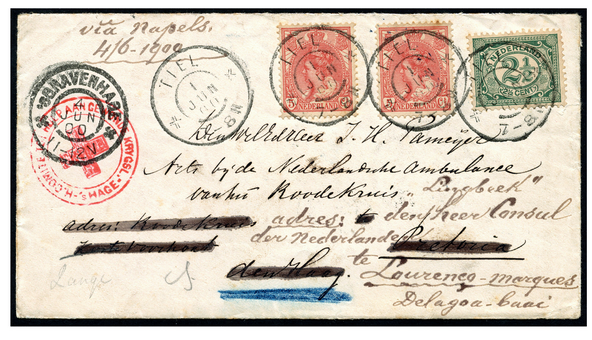 via Napels.
4/6-1900
TIEL
1
JUN
7-8N
TIEL
JUN
TIEL
NEDERLAND
NEDERLAND
NEDERLAND
2½
7-8N
'S GRAVENHAGE
JUN
00
'S HAGE
Den WelEd.Heer J. H. Pameijer
Arts bij de Nederlandsche Ambulance
van het Roode Kruis „Lingbeek"
adres: Roode Kruis adres: den heer Consul
der Nederlanden Pretoria
den Haag te Lourenço-Marques
Delagoa-baai
Lange